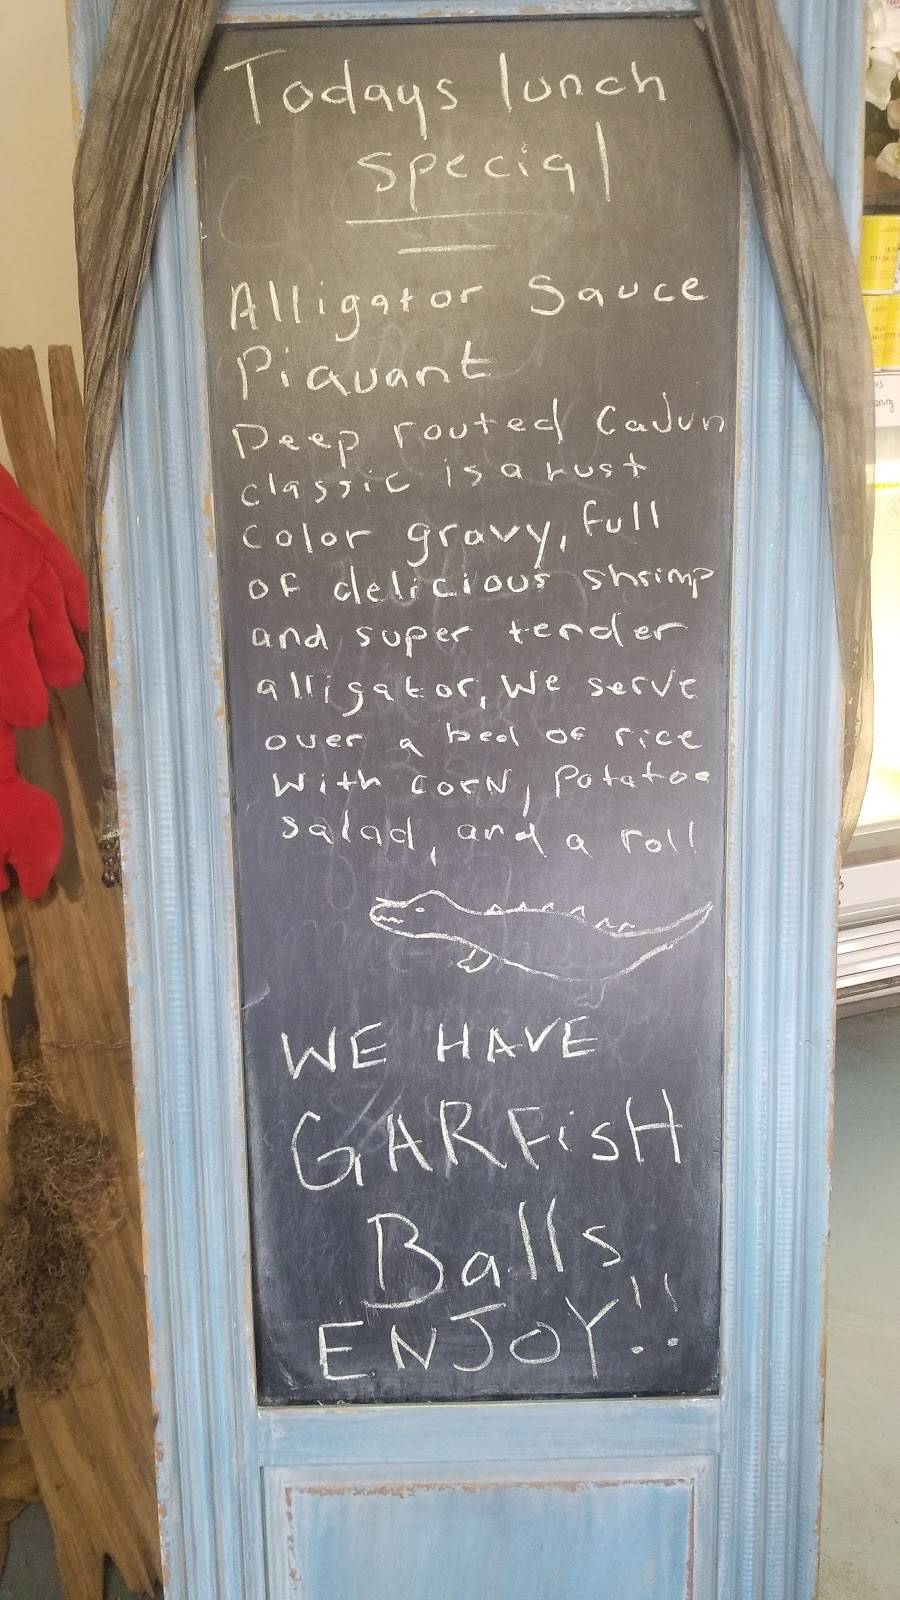 Todays lunch
special
Alligator Sauce
Piquant
Deep routed Cajun
classic is a rust
color gravy, full
of delicious shrimp
and super tender
alligator, We serve
over a bed of rice
With corn, Potatoe
salad, and a roll
WE HAVE
GARFisH
Balls
ENJOY!!